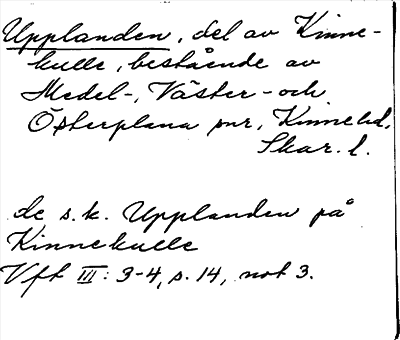 Upplanden, del av Kinne-
kulle, bestående av
Medel-, Väster- och
Österplana snr, Kinne hd,
Skar. l.
de s.k. Upplanden på
Kinnekulle
Vft III: 3-4, s. 14, not 3.